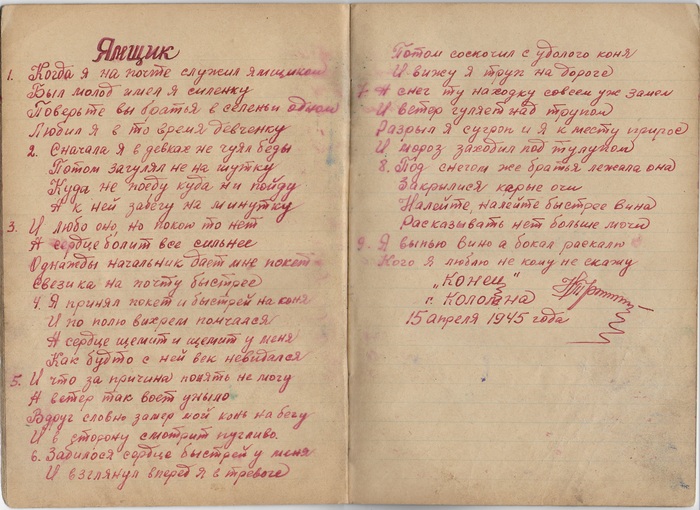 Ямщик
1. Когда я на почте служил ямщиком
Был молод имел я силенку
Поверьте вы братья в селеньи одном
Любил я в то время девченку
2. Сначала я в девках не чуял беды
Потом загулял не на шутку
Куда не поеду куда ни пойду
А к ней забегу на минутку
3. И любо оно, но покою то нет
А сердце болит все сильнее
Однажды начальник дает мне покет
Свезика на почту быстрее
4. Я принял покет и быстрей на коня
И по полю вихрем помчался
А сердце щемит и щемит у меня
Как будто с ней век невидался
5. И что за причина понять не могу
А ветер так воет уныло
Вдруг словно замер мой конь на бегу
И в сторону смотрит пугливо.
6. Забилося сердце быстрей у меня
И взглянул вперед я в тревоге
Потом соскочил с удалого коня
И вижу я труп на дороге
7. А снег ту находку совсем уж замел
И ветер гуляет над трупом
Разрыл я сугроб и я к месту прирос
И мороз заходил под тулупом
8. Под снегом же братья лежала она
Закрылися карые очи
Налейте, налейте быстрее вина
Расказывать нет больше мочи
9. Я выпью вино а бокал раскалю
Кого я люблю не кому не скажу
„Конец"
г. Коломна
15 апреля 1945 года